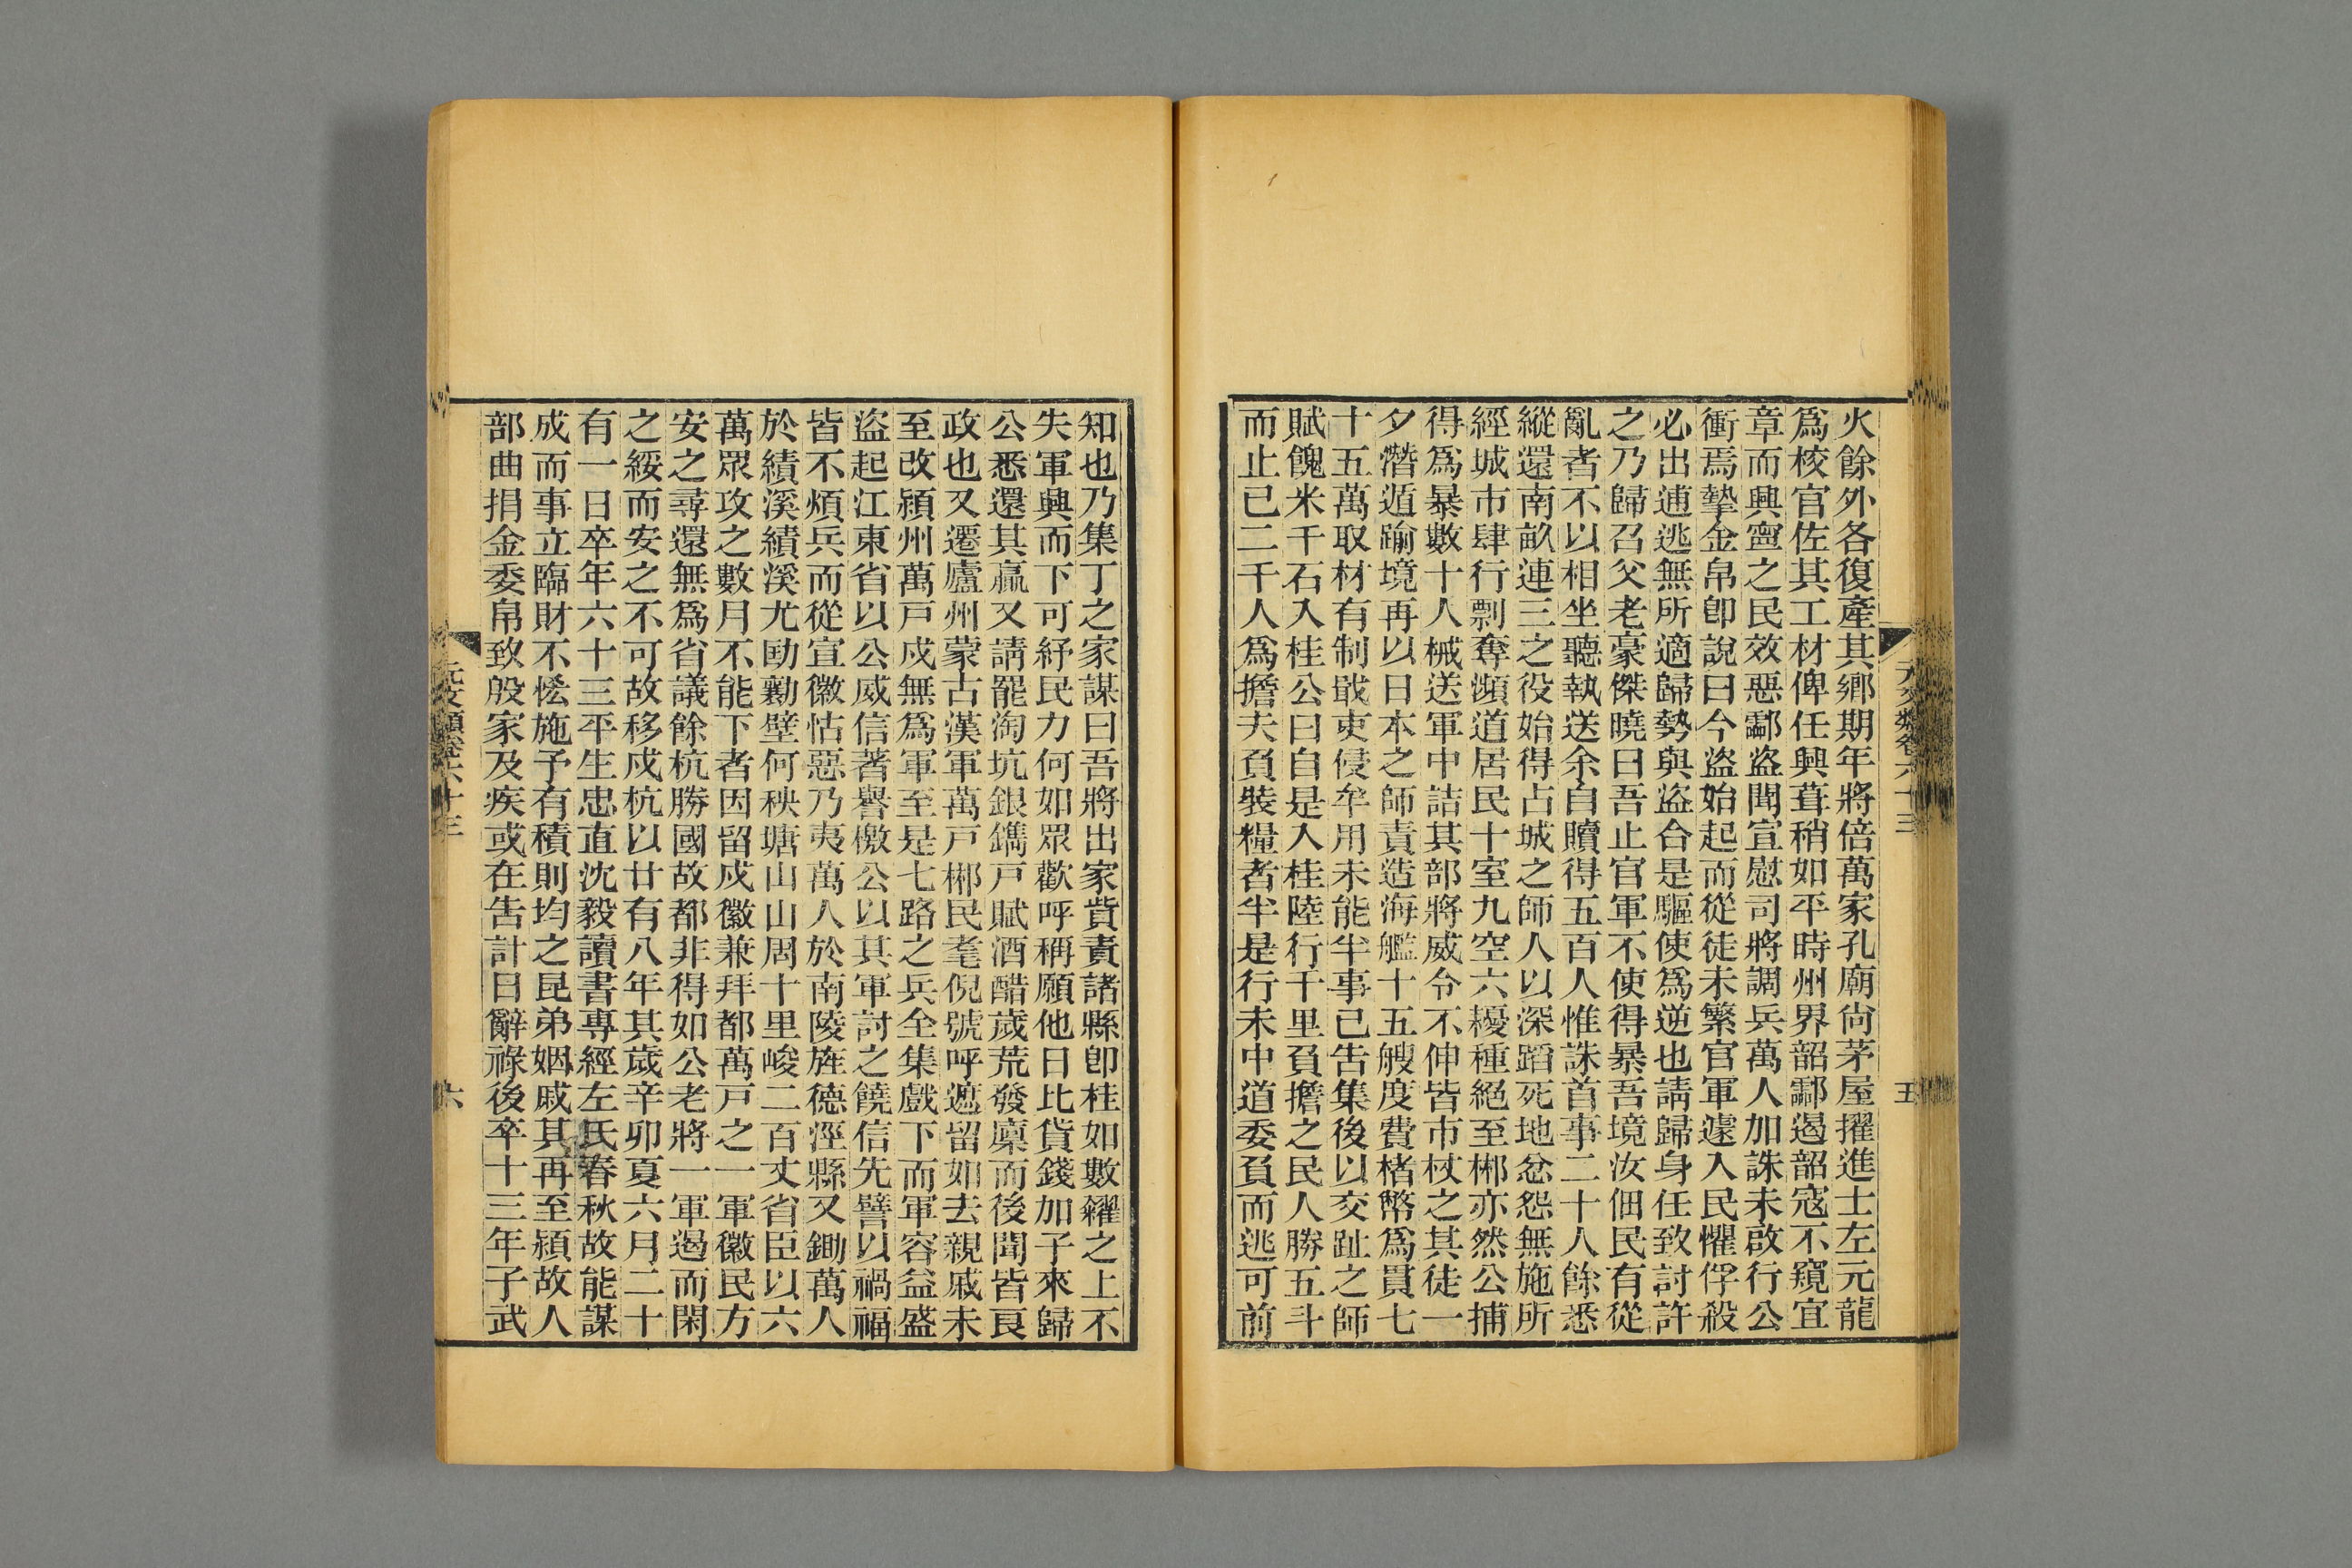 火餘外各復產其鄉期年將倍萬家孔廟尙茅屋擢進士左元龍
爲核官佐其工材俾任興葺稍如平時州界韶酃遏韶寇不窺宜
章而興寧之民效惡酃盜聞宣慰司將調兵萬人加誅未啟行公
衝焉摯金帛卽說曰今盜始起而從徒未繁官軍遽入民懼俘殺
必出逋逃無所適歸勢與盜合是驅使爲逆也請歸身任致討許
之乃歸召父老豪傑曉曰吾止官軍不使得暴吾境汝佃民有從
亂者不以相坐聽執送余自贖得五百人惟誅首事二十人餘悉
縱還南畝連三之役始得占城之師人以深蹈死地忿怨無施所
經城市肆行剽奪瀕道居民十室九空六耰種絕至郴亦然公捕
得爲暴數十人械送軍中詰其部將威令不伸皆市杖之其徒一
夕潛遁踰境再以日本之師責造海艦十五艘度費楮幣爲貫七
十五萬取材有制戢吏侵牟用未能半事已告集後以交趾之師
賦餽米千石入桂公曰自是入桂陸行千里負擔之民人勝五斗
而止已二千人爲擔夫負裝糧者半是行未中道委負而逃可前
元文類卷六十三
五
知也乃集丁之家謀曰吾將出家貲責諸縣卽桂如數糴之上不
失軍興而下可紓民力何如眾歡呼稱願他日比貸錢加子來歸
公悉還其贏又請罷淘坑銀鐫戶賦酒醋歲荒發廪而後聞皆良
政也又遷廬州蒙古漢軍萬戶郴民耄倪號呼遮留如去親戚未
至改潁州萬戶戍無爲軍至是七路之兵全集戲下而軍容益盛
盜起江東省以公威信著譽檄公以其軍討之饒信先譬以禍福
皆不煩兵而從宣徽怙惡乃夷萬人於南陵旌德涇縣又鋤萬人
於績溪績溪尤劻勷壁何秧塘山山周十里峻二百丈省臣以六
萬眾攻之數月不能下者因留戍徽兼拜都萬戶之一軍徽民方
安之尋還無爲省議餘杭勝國故都非得如公老將一軍遏而閑
之綏而安之不可故移戍杭以廿有八年其歲辛卯夏六月二十
有一日卒年六十三平生忠直沈毅讀書專經左氏春秋故能謀
成而事立臨財不恡施予有積則均之昆弟姻戚其再至潁故人
部曲捐金委帛致殷家及疾或在告計日辭祿後卒十三年子武
元文類卷六十三
六